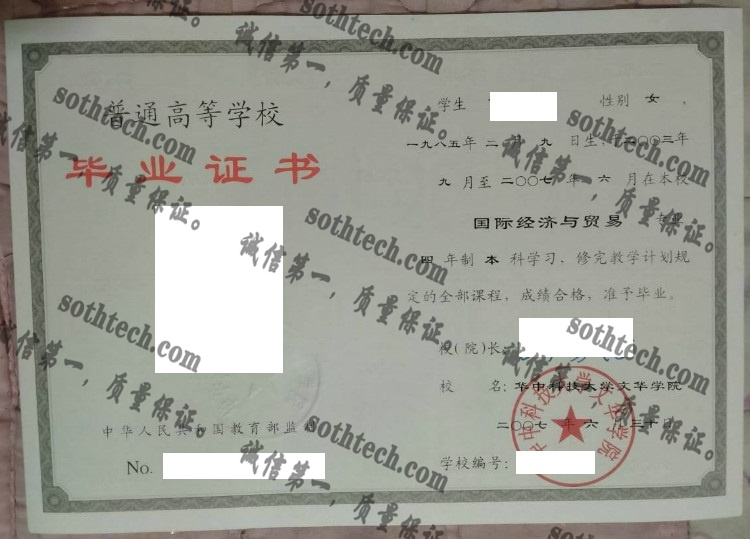 普通高等学校
毕业证书
中华人民共和国教育部监制
No.
学生 性别 女 ,
一九八五年 二 月 九 日生,于二〇〇三年
九 月至 二〇〇七 年 六 月在本校
国际经济与贸易 专业
四 年制 本 科学习,修完教学计划规
定的全部课程,成绩合格,准予毕业。
校(院)长:
校 名:华中科技大学文华学院
二〇〇七 年 六 月 三十日
学校编号:
华中科技大学文华学院
sothtech.com
诚信第一,质量保证。
sothtech.com
诚信第一,质量保证。
sothtech.com
诚信第一,质量保证。
sothtech.com
诚信第一,质量保证。
sothtech.com
诚信第一,质量保证。
sothtech.com
诚信第一,质量保证。
sothtech.com
诚信第一,质量保证。